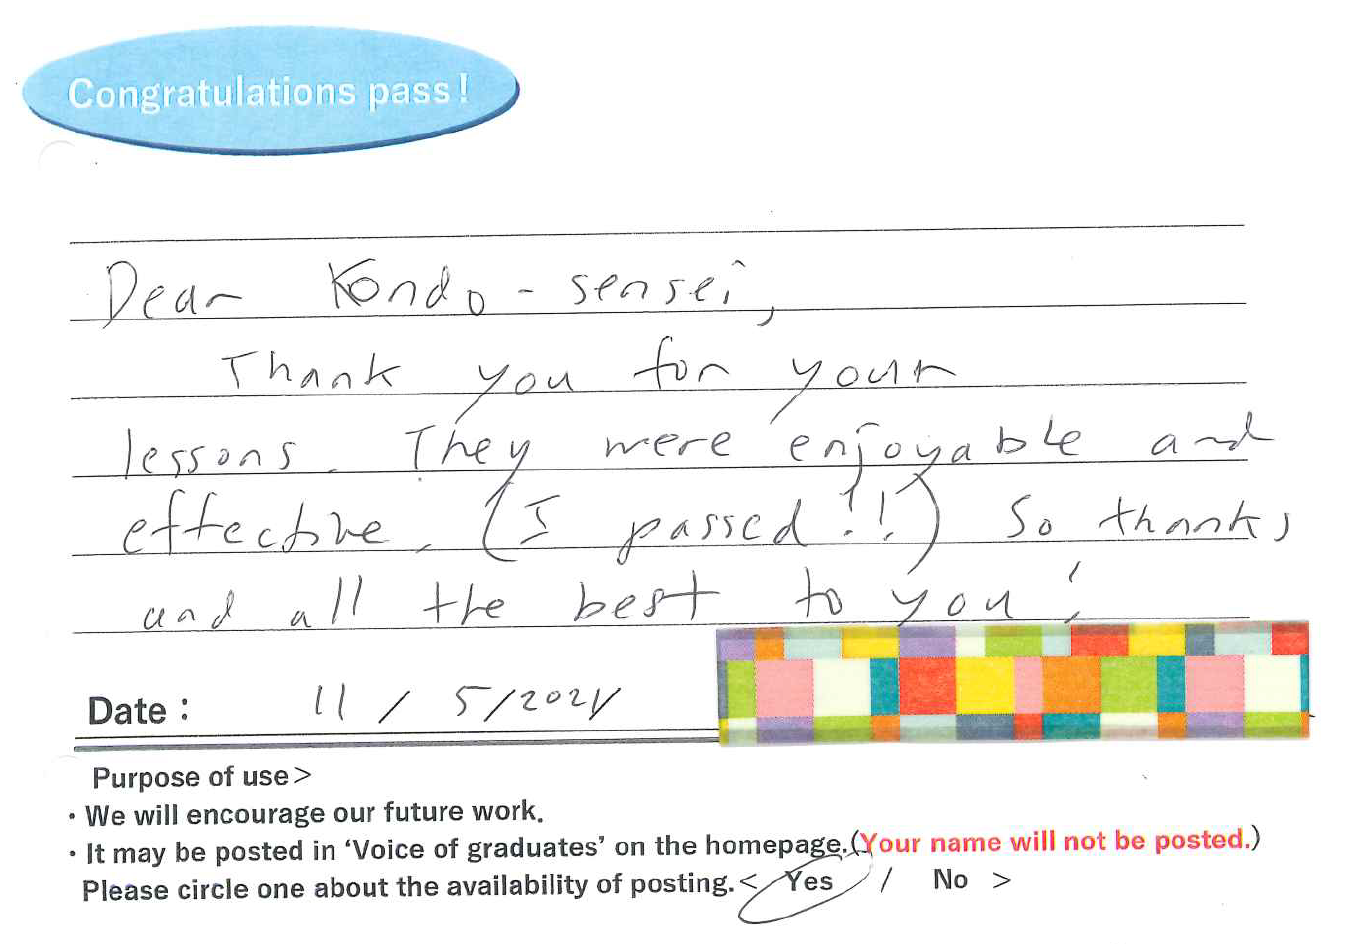 Congratulations pass!
Dear Kondo-sensei,
Thank you for your
lessons. They were enjoyable and
effective. (I passed!!) So thanks
and all the best to you!
Date: 11/5/2021
Purpose of use>
・We will encourage our future work.
・It may be posted in ‘Voice of graduates’ on the homepage.(Your name will not be posted.)
Please circle one about the availability of posting.< Yes / No >